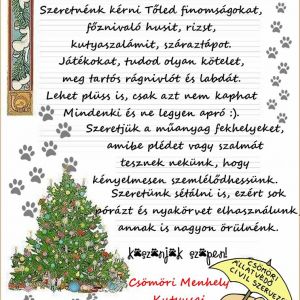 Szeretnénk kérni Tőled finomságokat,
főznivaló husit, rizst,
kutyaszalámit, száraztápot.
Játékokat, tudod olyan kötelet,
meg tartós rágnivlót és labdát.
Lehet plüss is, csak azt nem kaphat
Mindenki és ne legyen apró :).
Szeretjük a műanyag fekhelyeket,
amibe plédet vagy szalmát
tesznek nekünk, hogy
kényelmesen szemlélődhessünk.
Szeretünk sétálni is, ezért sok
pórázt és nyakörvet elhasználunk
annak is nagyon örülnénk.
Köszönjük szépen!
Csömöri Menhely
Kutyusai
CSÖMÖRI
ÁLLATVÉDŐ
CIVIL SZERVEZ